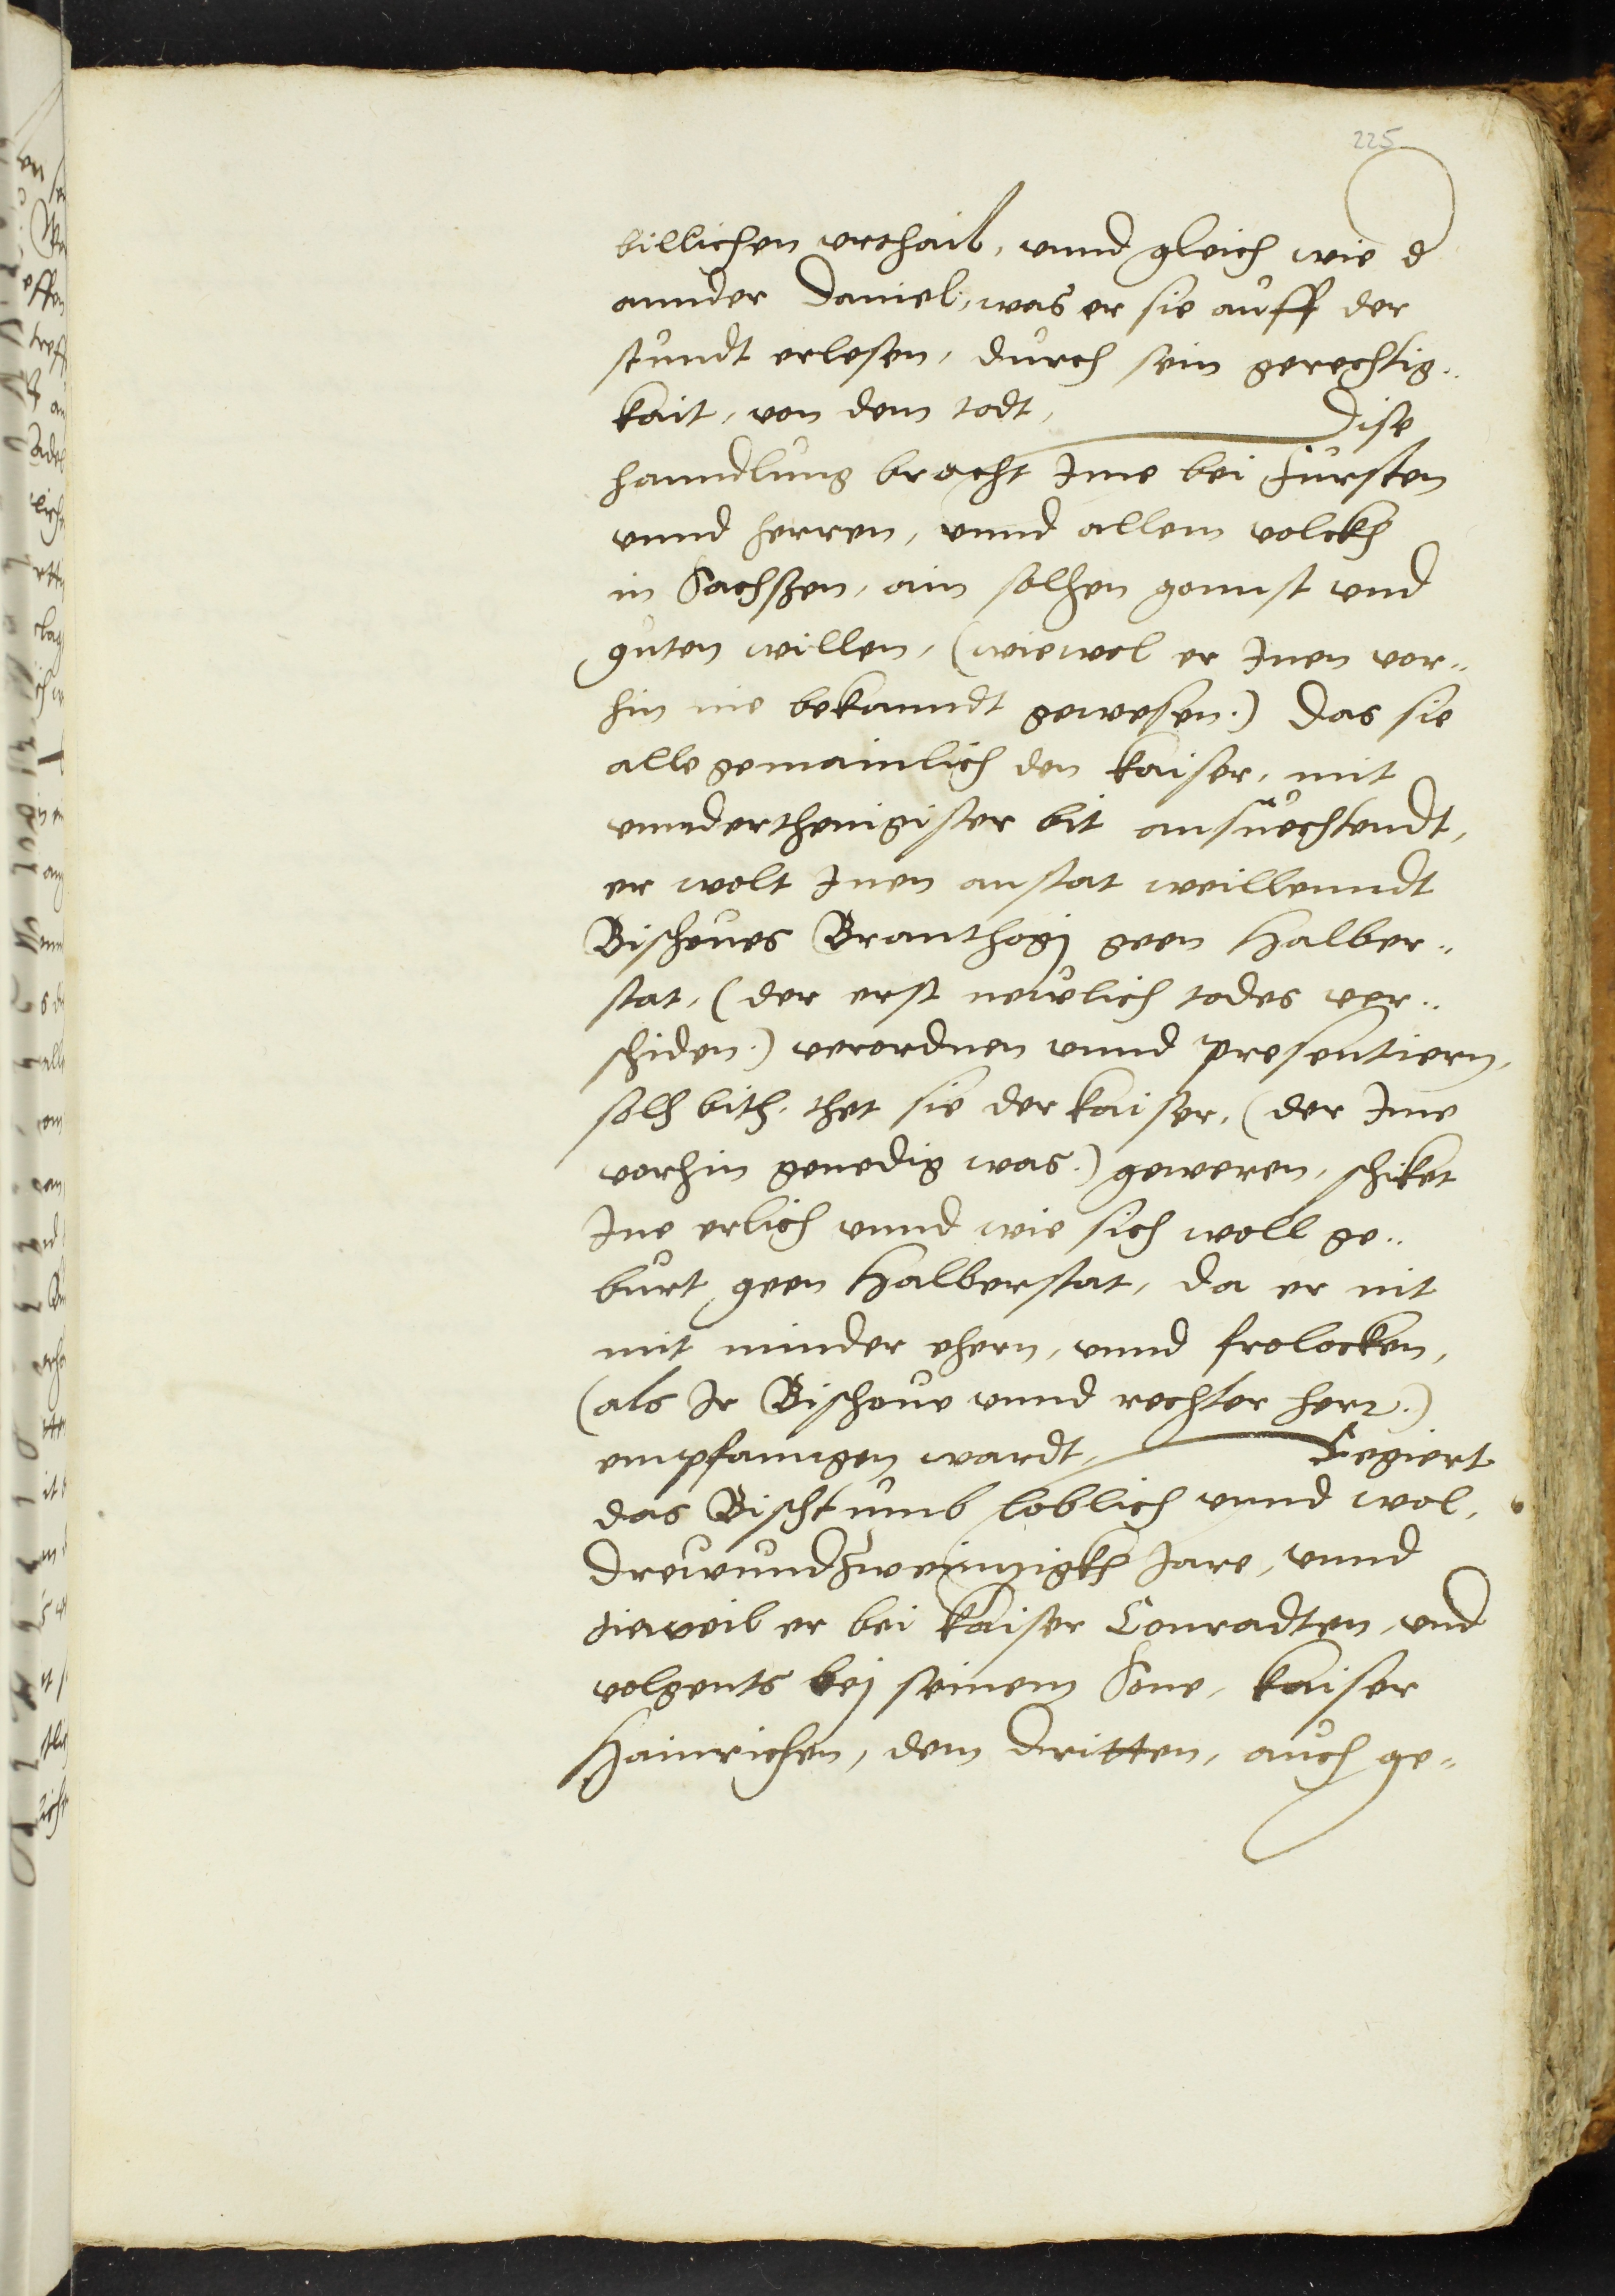 225
billichen vrthail, vnnd gleich wie d
annder Daniel, was er sie auff der
stundt erlesen, durch sein gerechtig¬
kait, von dem todt, Dise
hanndlung bracht Ime bei Fürsten
vnnd herren, vnnd allem volckh
in Sachßen, ain solhen gonnst vnd
guten willen, (wiewol er Inen vor¬
hin nie bekanndt gewesen.) Das sie
alle gemainlich den kaiser, mit
vnnderthenigister bit ansuechtendt,
er wolt Inen anstat weillenndt
Bischoues Branthogj geen Halber¬
stat, (der erst newlich todes ver¬
schiden.) verordnen vnnd presentiern,
solh bith, thet sie der kaiser, (der Ime
vorhin genedig was.) geweren, schiket
Ine erlich vnnd wie sich woll ge¬
burt geen Halberstat, da er nit
mit minder ehern, vnnd frolocken,
(als Ir Bischoue vnnd rechter herr.)
empfanngen wardt, Regiert
das Bischtumb loblich vnnd wol,
Drewundzweintzigkh Jare, vnnd
dieweil er bei kaiser Conradten, vnd
volgents bej seinem Sone, kaiser
Hainrichen, dem dritten, auch ge¬